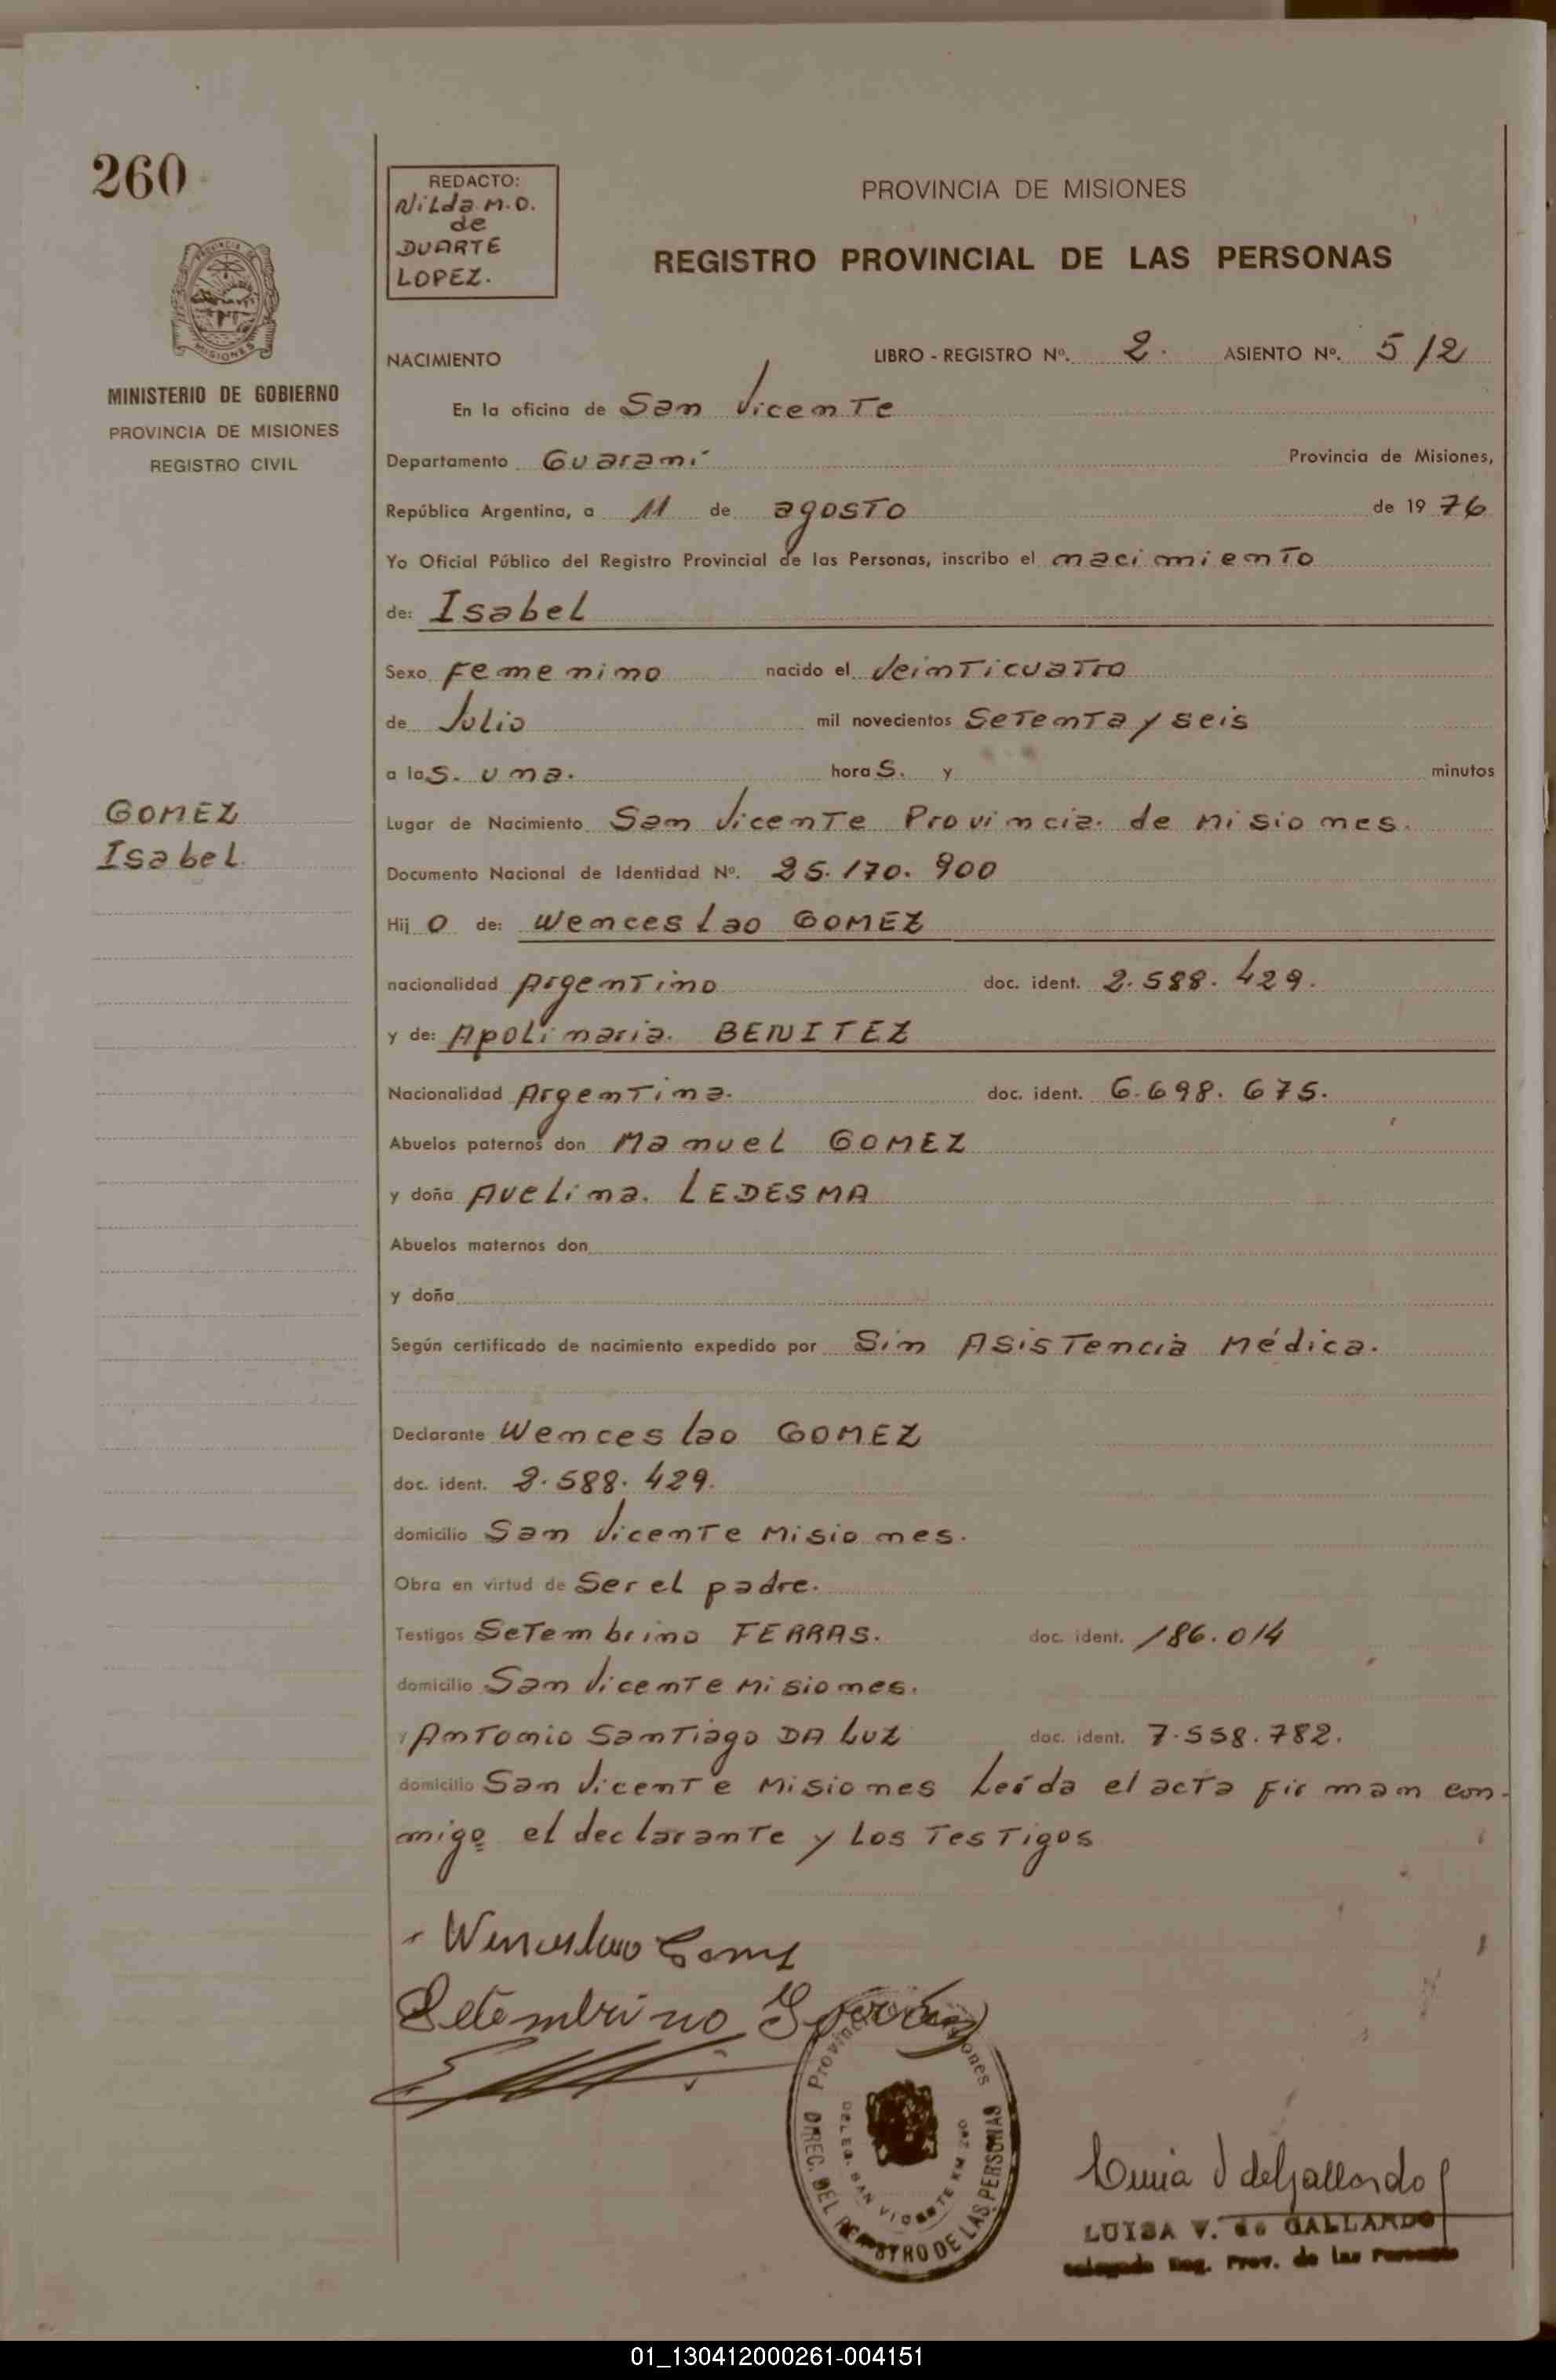 260
REDACTO:
Nilda M.O.
de
DUARTE
LOPEZ.
PROVINCIA DE MISIONES
REGISTRO PROVINCIAL DE LAS PERSONAS
PROVINCIA DE
MISIONES
MINISTERIO DE GOBIERNO
PROVINCIA DE MISIONES
REGISTRO CIVIL
NACIMIENTO LIBRO - REGISTRO Nº. 2. ASIENTO Nº. 512
En la oficina de San Vicente
Departamento Guaraní Provincia de Misiones,
República Argentina, a 11 de agosto de 1976
Yo Oficial Público del Registro Provincial de las Personas, inscribo el nacimiento
de: Isabel
Sexo Femenino nacido el Veinticuatro
de Julio mil novecientos Setenta y seis
a las. una. horaS. y minutos
GOMEZ
Isabel.
Lugar de Nacimiento San Vicente Provincia. de Misiones.
Documento Nacional de Identidad Nº. 25.170.900
Hij O de: Wenceslao GOMEZ
nacionalidad Argentino doc. ident. 2.588.429.
y de: Apolinaria. BENITEZ
Nacionalidad Argentina. doc. ident. 6.698.675.
Abuelos paternos don Manuel GOMEZ
y doña Avelina. LEDESMA
Abuelos maternos don
y doña
Según certificado de nacimiento expedido por Sin Asistencia Médica.
Declarante Wenceslao GOMEZ
doc. ident. 2.588.429.
domicilio San Vicente Misiones.
Obra en virtud de Ser el padre.
Testigos Setembrino FERRAS. doc. ident. 186.014
domicilio San Vicente Misiones.
y Antonio Santiago DA LUZ doc. ident. 7.558.782.
domicilio San Vicente Misiones Leída el acta firman con-
migo el declarante y los Testigos
Wenceslao Gomez
Setembrino
Provincia Misiones
DIREC. DEL REGISTRO DE LAS PERSONAS
DELEG. SAN VICENTE KM 260
Luisa V de Gallardo
LUISA V. de GALLARDO
Delegada Reg. Prov. de las Personas
01_130412000261-004151